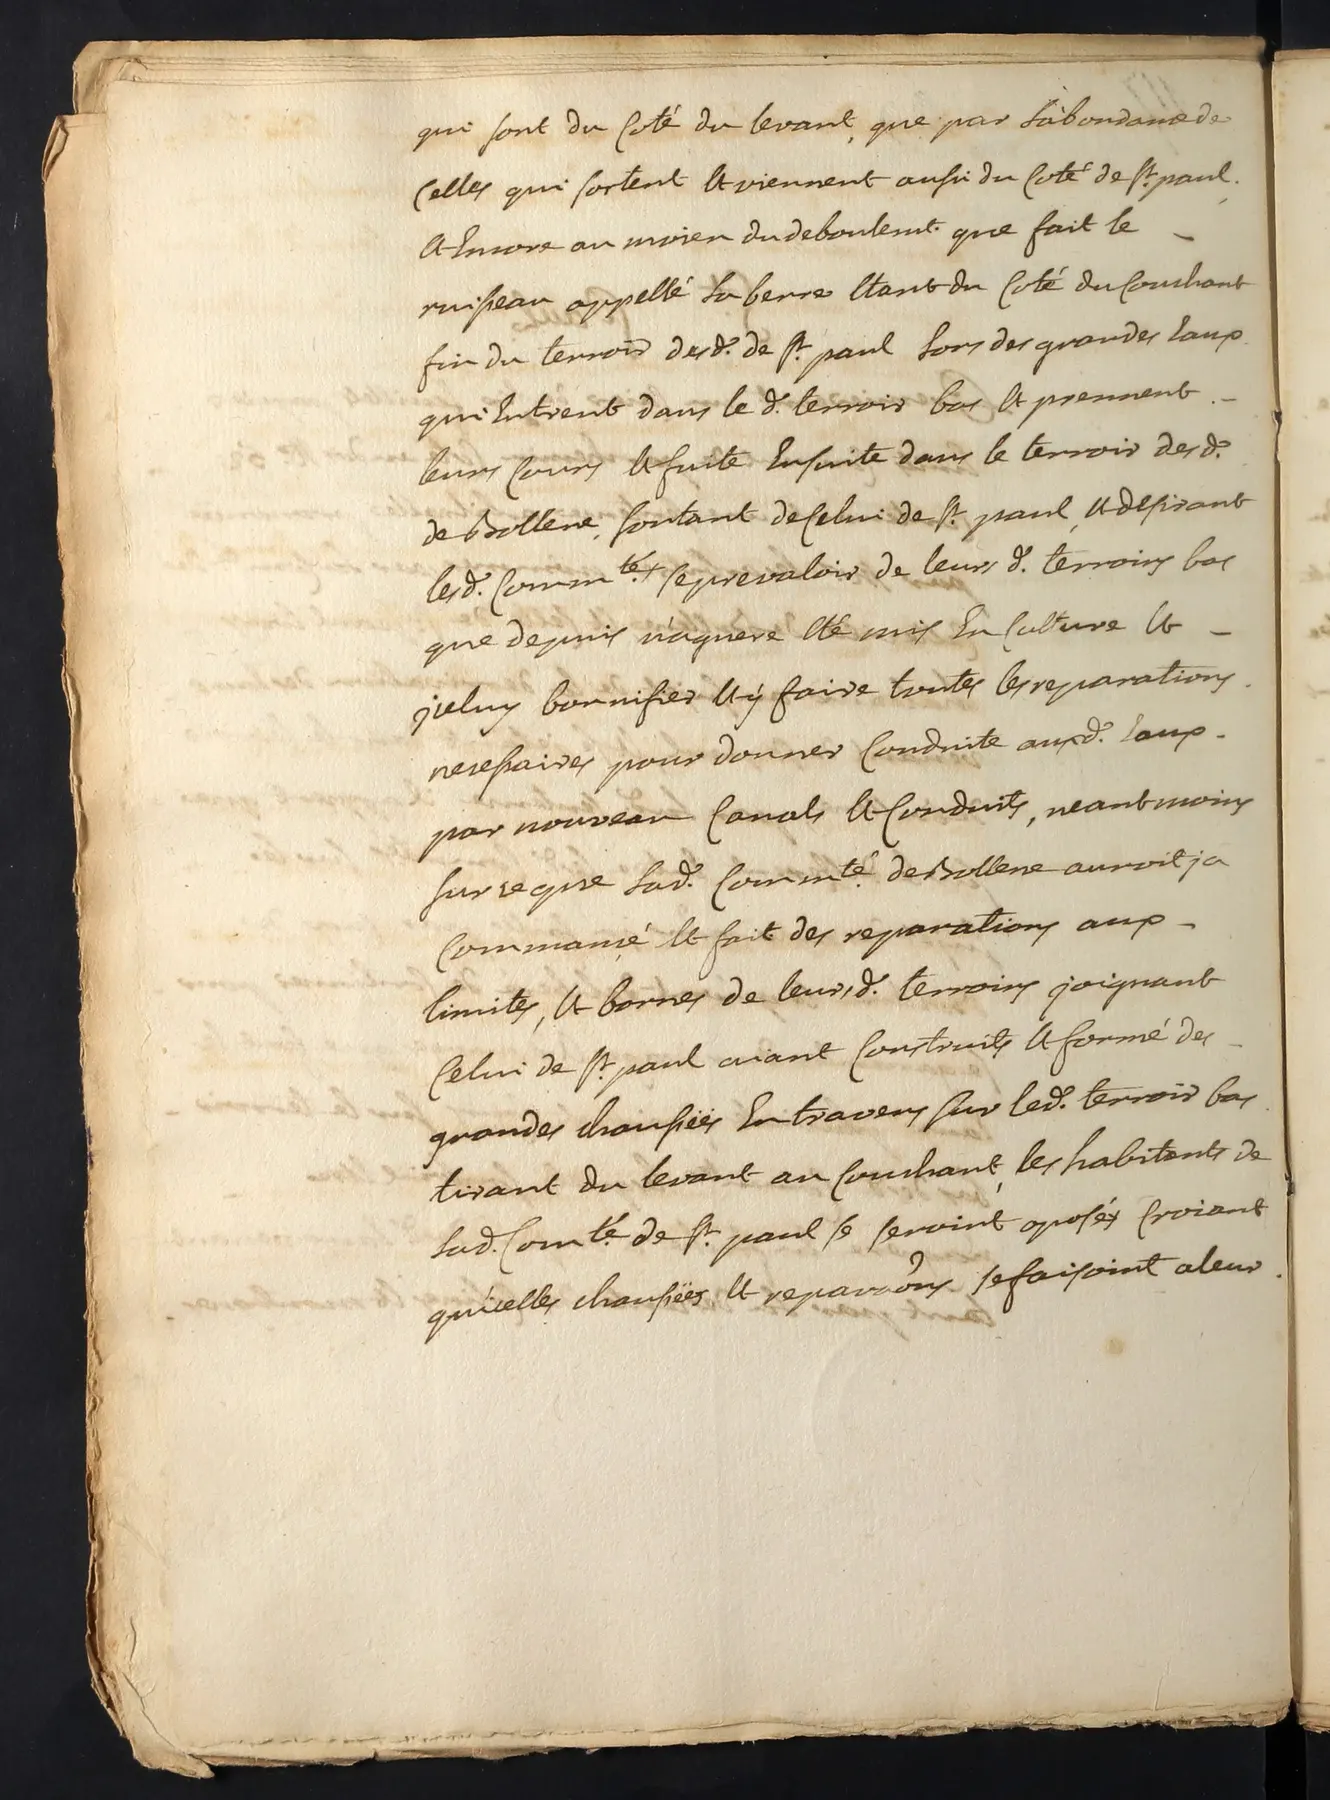 qui sont du Coté du levant, que par L'abondance de
Celles qui sortent Et viennent aussi du Coté de St. paul.
Et Encore au moien du deboulemt. que fait le -
ruisseau appellé La berre Etant du Coté du Couchant
fin du terroir desd. de St. paul Lors des grandes Eaux
qui Entrent dans le d. terroir bas Et prennent -
leurs Cours Et fuite Ensuite dans le terroir des d.
de Bollene, sortant de Celui de St. paul, Et desirant
lesd. Commtés. se prevaloir de leurs d. terroirs bas
que depuis n'aguere Eté mis En Culture Et -
jceluy bonnifier Et ÿ faire toutes les reparations.
necessaires pour donner Conduite auxd. Eaux -
par nouveau Canals Et Conduits, neantmoins
sur ce que Lad. Commté. de Bollene auroit ja
Commancé Et fait des reparations aux -
limites, Et bornes de leursd. terroirs joignant
Celui de St. paul aiant Construits Et formé des -
grandes chaussées En travers sur led. terroir bas
tirant du levant au Couchant, les habitants de
Lad. Comté. de St. paul se seroint oposés Croiant
qu'icelles chaussëes, Et reparaôns se faisoint a leur.